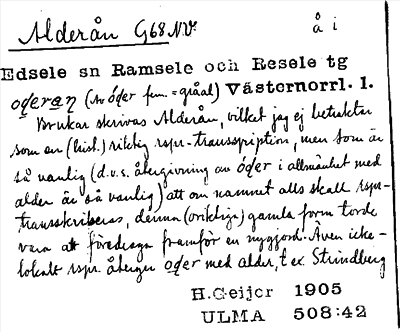 Alderån G68 N.V.
å i
Edsele sn Ramsele och Resele tg
oderan (Av óder fem. = gråal) Västernorrl. l.
Brukar skrivas Alderån, vilket jag ej betraktar
som en (hist.) riktig rspr-transskription, men som är
så vanlig (d.v.s. återgivning av óder i allmänhet med
alder är så vanlig) att om namnet alls skall rspr-
transskriberas, denna (oriktiga) gamla form torde
vara att föredraga framför en nygjord. Även icke-
lokalt rspr. återger oder med alder, t ex. Strindberg
H.Geijer 1905
ULMA 508:42